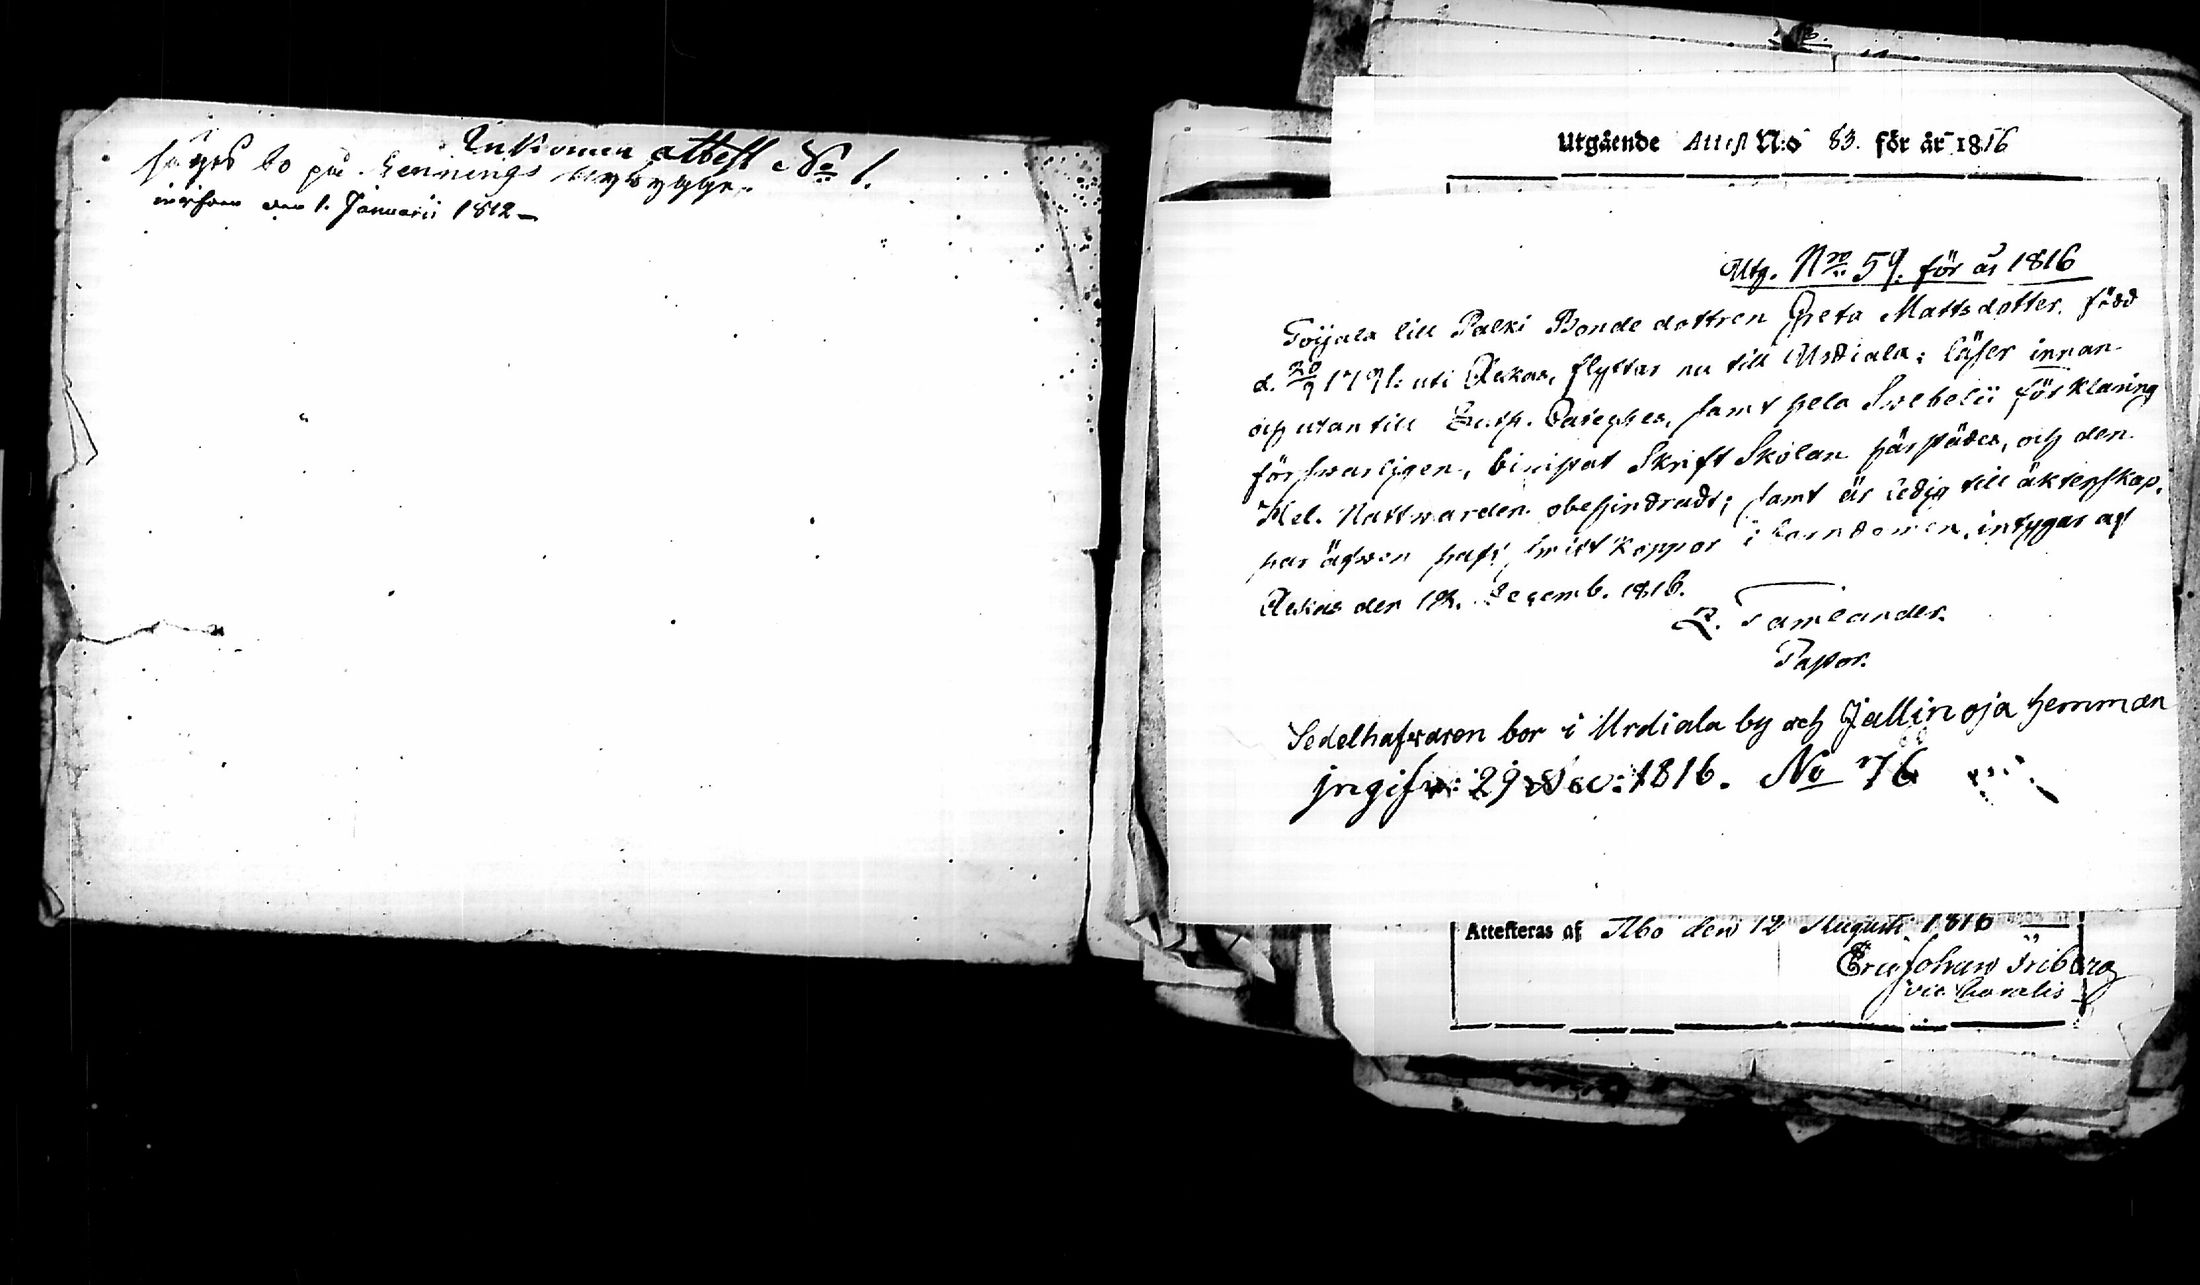 Inkommen attest No 1.
säges bo på Hennings nybygge.
den 1. Januarii 1812
Utgående Attest N:o 83. för år 1816
Utg. Nro 59. för år 1816
Töijala lill Palki Bonde dottren Greta Mattsdotter. född
d. 20/9 1791. uti Ackas, flyttar nu till Urdiala; läser innan
och utan till Luth. Cateches, samt hela Svebelii förklaring
försvarligen, bivistat Skrift Skolan härstädes, och den
Hel. Nattwarden obehindradt; samt är ledig till äktenskap,
har äfwen haft smittkoppor i barndomen, intygar af
Ackas den Decemb. 1816.
Tamlander.
Pastor.
Sedelhafvaren bor i Urdiala by och Jallinoja hemman
ingifv: 29 Dec: 1816. No 76
Attesteras af Åbo den 12 Augusti 1816
Eric Johan Friberg